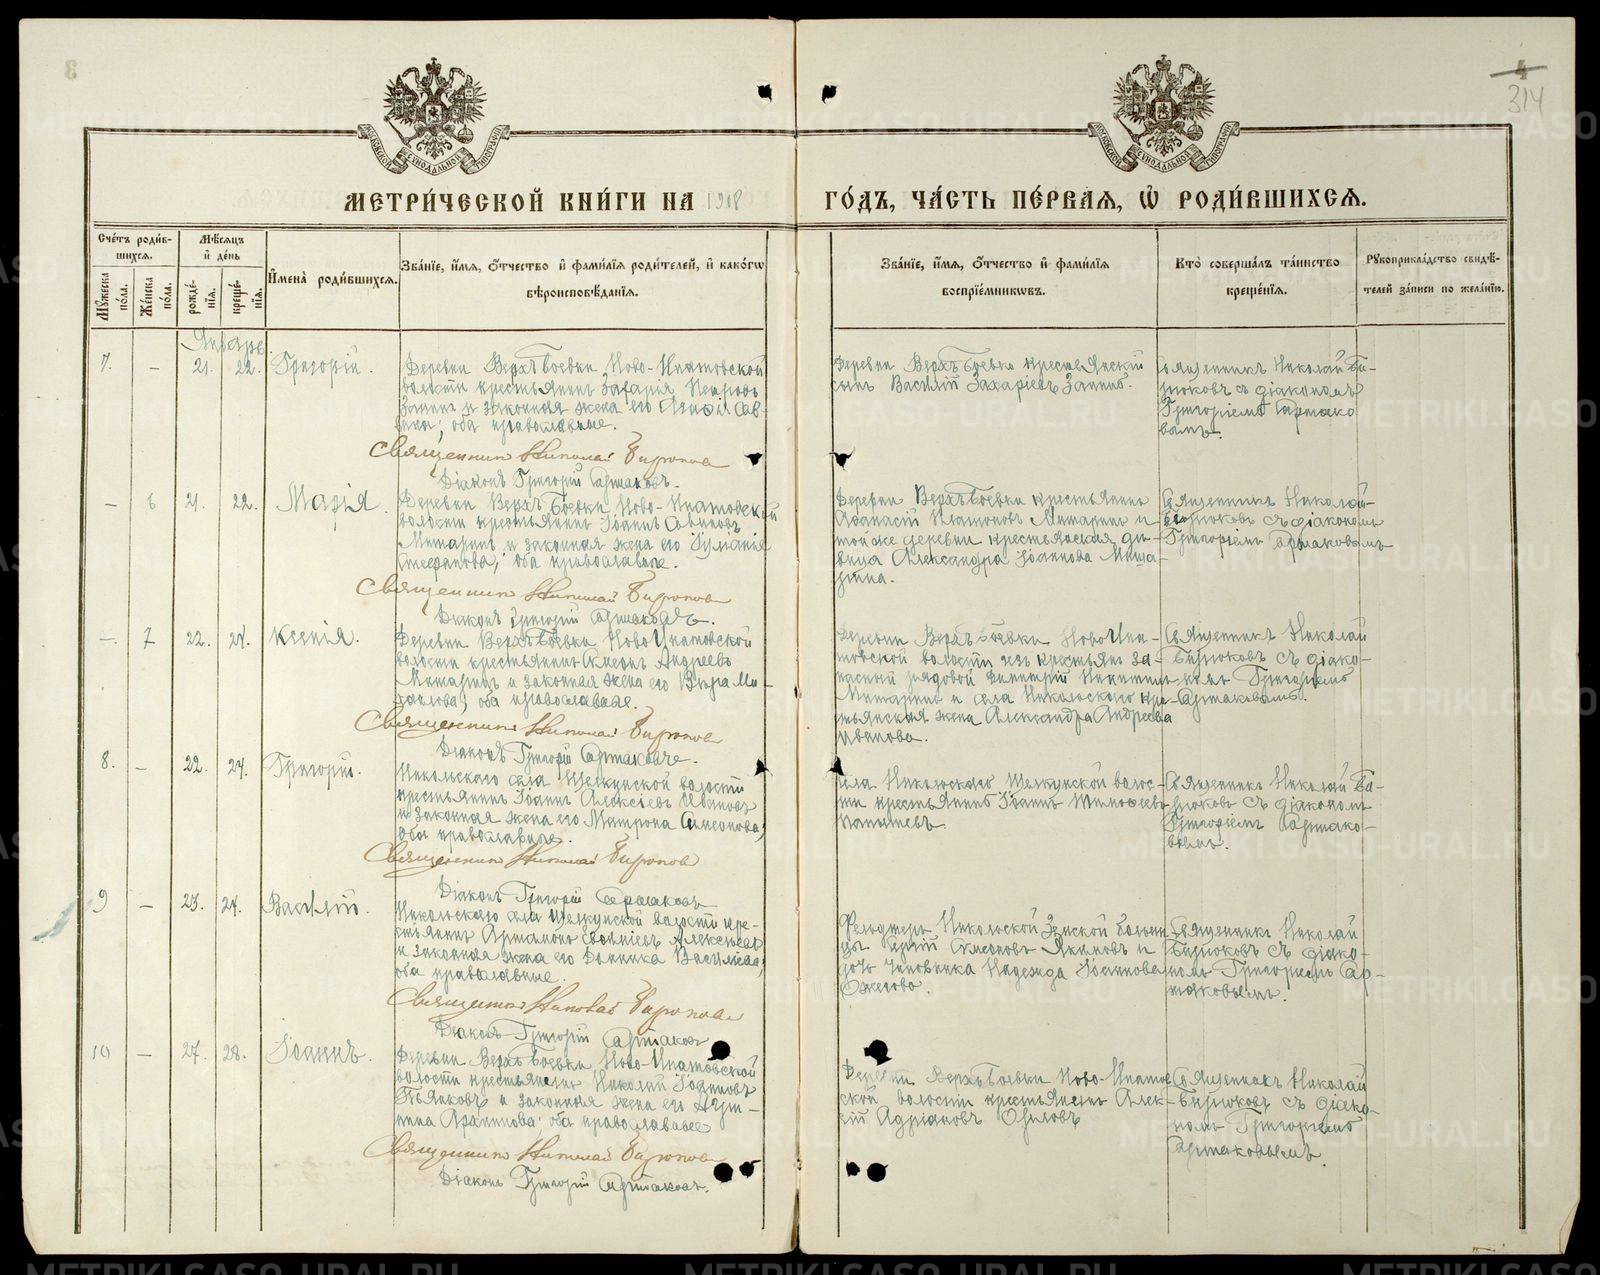 314
МОСКОВСКОЙ СѴНОДАЛЬНОЙ ТИПОГРАФІИ
МОСКОВСКОЙ СѴНОДАЛЬНОЙ ТИПОГРАФІИ
МЕТРИ́ЧЕСКОЙ КНИ́ГИ НА 1918 ГО́ДЪ, ЧА́СТЬ ПЕ́РВАЯ, Ѡ҆ РОДИ́ВШИХСЯ.
Сче́тъ роди́в-
шихся.
Мѣ́сяцъ
и҆ де́нь
Мꙋ́жеска по́ла.
Же́нска по́ла.
рожде́нїя.
креще́нїя.
И҆мена̀ роди́вшихся.
Зва́нїе, и҆́мя, о҆́тчество и҆ фами́лїя роди́телей, и҆ како́гѡ
вѣроисповѣ́данїя.
Зва́нїе, и҆́мя, о҆́тчество и҆ фами́лїя
воспрїе́мникѡвъ.
Кто̀ соверша́лъ та́инство
креще́нїя.
Рꙋкоприкла́дство свидѣ́-
телей за́писи по жела́нїю.
Январь
7. — 21. 22. Григорій.
Деревни Верхъ Боевки Ново-Ипатовской
волости крестьянинъ Захарія Петровъ
Зайинъ и законная жена его
оба православные.
Священникъ Николай Бирюковъ
Діаконъ Григорій Сартаковъ.
Деревни Верхъ Боевки крестьянскій
сынъ Василій Захаріевъ
Священникъ Николай Би-
рюковъ съ діакономъ
Григоріемъ Сартако
вымъ.
— 6 21. 22. Марія.
Деревни Верхъ Боевки Ново-Ипатовской
волости крестьянинъ Іоаннъ Савиновъ
и законная жена его
Стефанова; оба православные.
Священникъ Николай Бирюковъ
Діаконъ Григорій Сартаковъ.
Деревни Верхъ Боевки крестьянинъ
Афанасій Платоновъ и
той же деревни крестьянская дѣ-
вица Александра Іоаннова
Священникъ Николай
Бирюковъ съ діакономъ
Григоріемъ Сартаковымъ
— 7 22. 24. Ксенія.
Деревни Верхъ Боевки Ново Ипатовской
волости крестьянинъ Симеонъ Андреевъ
и законная жена его Вѣра Ми-
хаилова; оба православные.
Священникъ Николай Бирюковъ
Діаконъ Григорій Сартаковъ.
Деревни Верхъ Боевки Ново Ипа-
товской волости изъ крестьянъ за-
пасный рядовой Димитрій Никитинъ
и села Никольскаго кре-
стьянская жена Александра Андреева
Иванова.
Священникъ Николай
Бирюковъ съ діако-
номъ Григоріемъ
Сартаковымъ.
8. — 22. 24. Григорій.
Никольскаго села Щелкунской волости
крестьянинъ Іоаннъ Алексіевъ Ивановъ
и законная жена его Матрона Симеонова;
оба православные.
Священникъ Николай Бирюковъ
Діаконъ Григорій Сартаковъ
села Никольскаго Щелкунской волос-
ти крестьянинъ Іоаннъ Тимофеевъ
Священникъ Николай Би-
рюковъ съ діакономъ
Григоріемъ Сартако-
вымъ.
9 — 23. 24. Василій.
Никольскаго села Щелкунской волости кре-
стьянинъ Артамонъ Алексѣевъ
и законная жена его Домника Василіева;
оба православные.
Священникъ Николай Бирюковъ
Діаконъ Григорій Сартаковъ
Фельдшеръ Никольской Земской больни
цы Симеоновъ Якимовъ и
дочь чиновника Надежда Іоаннова
Ожегова.
Священникъ Николай
Бирюковъ съ діако-
номъ Григоріемъ Сар-
таковымъ.
10 — 27. 28. Іоаннъ.
Деревни Верхъ Боевки Ново-Ипатовской
волости крестьянинъ Николай Іоанновъ
и законная жена его
оба православные
Священникъ Николай Бирюковъ
Діаконъ Григорій Сартаковъ.
Деревни Верхъ Боевки Ново-Ипатов
ской волости крестьянинъ Алек-
сій Адріановъ
Священникъ Николай
Бирюковъ съ діако-
номъ Григоріемъ
Сартаковымъ.
METRIKI.GASO-URAL.RU